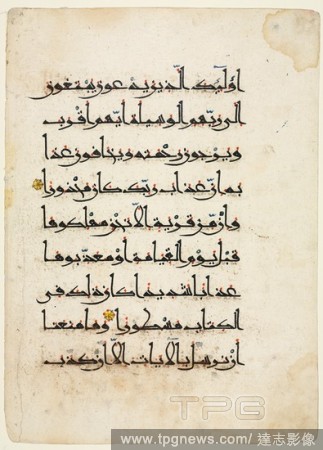 اولئك الذين يدعون يبتغون
الى ربهم الوسيلة ايهم اقرب
ويرجون رحمته ويخافون عذا
به ان عذاب ربك كان محذورا
وان من قرية الا نحن مهلكوها
قبل يوم القيامة او معذبوها
عذابا شديدا كان ذلك فى
الكتاب مسطورا وما منعنا
ان نرسل بالايات الا ان كذب
TPG
www.tpgnews.com / 達志影像